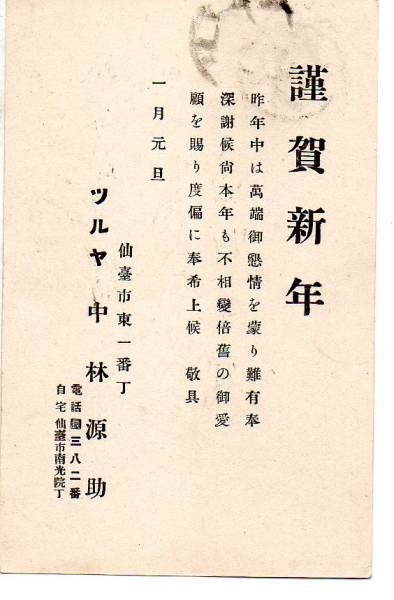 謹賀新年
昨年中は萬端御懇情を蒙り難有奉
深謝候尙本年も不相變倍舊の御愛
顧を賜り度偏に奉希上候 敬具
一月元旦
仙臺市東一番丁
ツルヤ 中林源助
電話三八二番
自宅仙臺市南光院丁